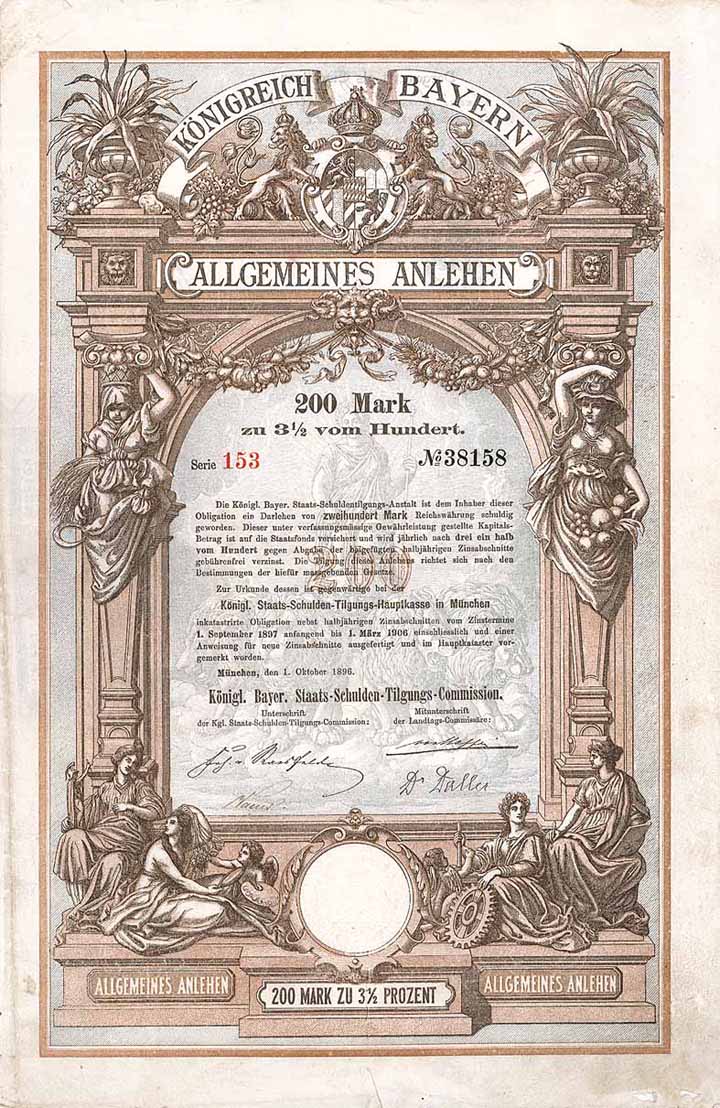 KÖNIGREICH BAYERN
ALLGEMEINES ANLEHEN
200 Mark
zu 3½ vom Hundert.
Serie 153 № 38158
Die Königl. Bayer. Staats-Schuldentilgungs-Anstalt ist dem Inhaber dieser
Obligation ein Darlehen von zweihundert Mark Reichswährung schuldig
geworden. Dieser unter verfassungsmässige Gewährleistung gestellte Kapitals-
Betrag ist auf die Staatsfonds versichert und wird jährlich nach drei ein halb
vom Hundert gegen Abgabe der beigefügten halbjährigen Zinsabschnitte
gebührenfrei verzinst. Die Tilgung dieses Anlehens richtet sich nach den
Bestimmungen der hiefür massgebenden Gesetze.
200
Zur Urkunde dessen ist gegenwärtige bei der
Königl. Staats-Schulden-Tilgungs-Hauptkasse in München
inkatastrirte Obligation nebst halbjährigen Zinsabschnitten vom Zinstermine
1. September 1897 anfangend bis 1. März 1906 einschliesslich und einer
Anweisung für neue Zinsabschnitte ausgefertigt und im Hauptkataster vor-
gemerkt worden.
München, den 1. Oktober 1896.
Königl. Bayer. Staats-Schulden-Tilgungs-Commission.
Unterschrift Mitunterschrift
der Kgl. Staats-Schulden-Tilgungs-Commission: der Landtags-Commissäre:
Dr Daller
ALLGEMEINES ANLEHEN
200 MARK ZU 3½ PROZENT
ALLGEMEINES ANLEHEN